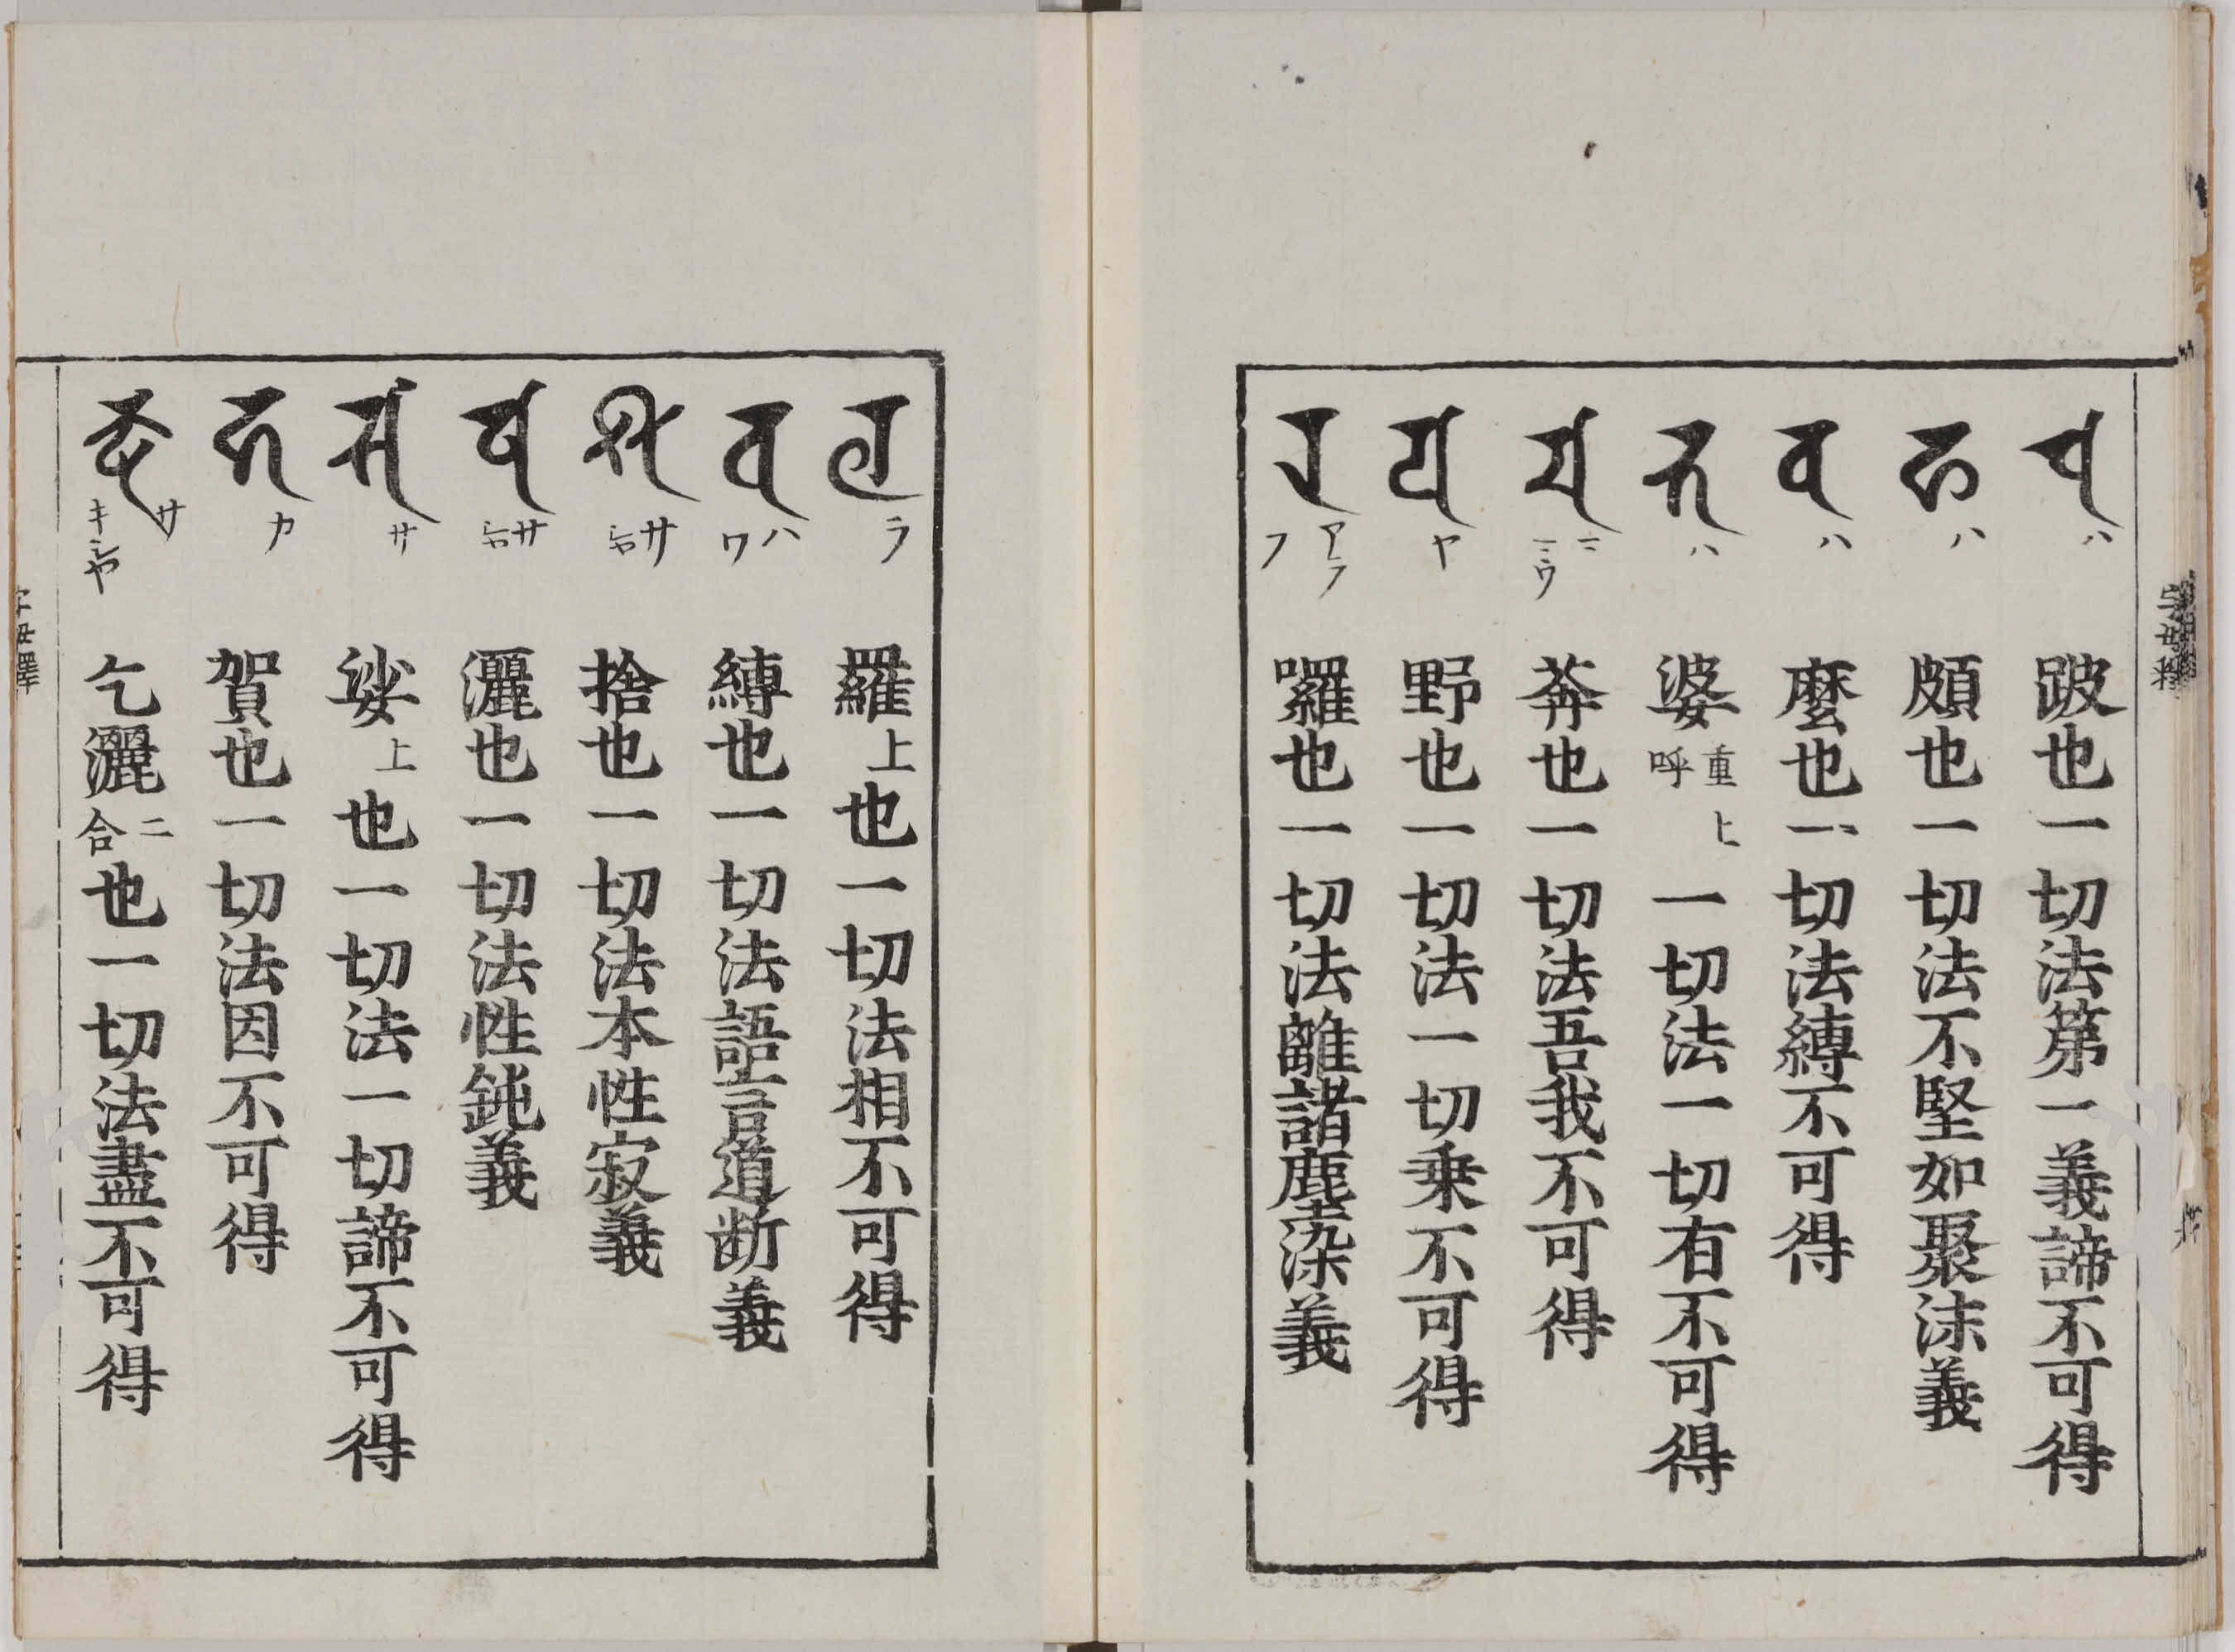 𑖢 ハ 跛也一切法第一義諦不可得
𑖣 ハ 頗也一切法不堅如聚沫義
𑖤 ハ 麼也一切法縛不可得
𑖥 ハ 婆重上呼 一切法一切有不可得
𑖦 莾也一切法吾我不可得
𑖧 ヤ 野也一切法一切乗不可得
𑖨 囉也一切法離諸塵染義
𑖩 ラ 羅上也一切法相不可得
𑖪 ハワ 縛也一切法語言道断義
𑖫 サシヤ 捨也一切法本性寂義
𑖬 サシヤ 灑也一切法性鈍義
𑖭 サ 娑上也一切法一切諦不可得
𑖮 カ 賀也一切法因不可得
𑖎𑖿𑖬 サキシヤ 乞灑二合也一切法盡不可得
字母釋